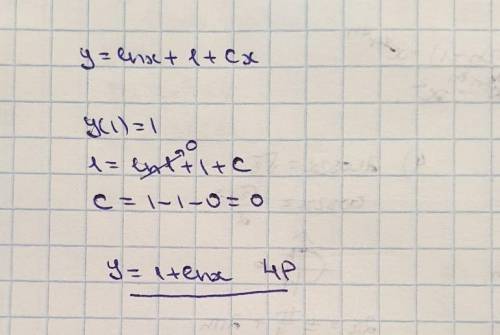 y = lnx + 1 + Cx
y(1) = 1
0
1 = ln1 + 1 + C
C = 1 - 1 - 0 = 0
y = 1 + lnx 4P